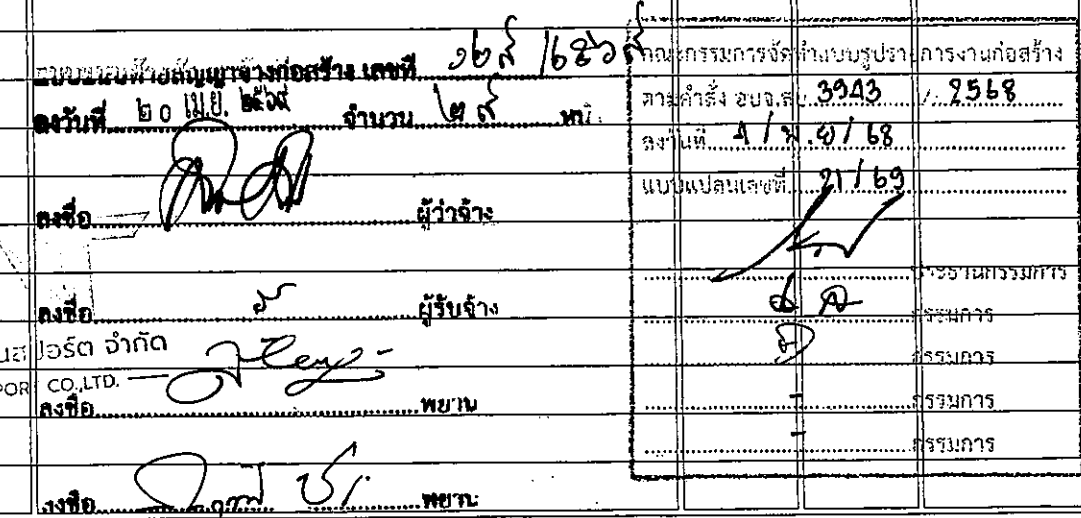 แบบแนบท้ายสัญญาจ้างก่อสร้าง เลขที่ ๑๒๙ /๒๕๖๙
ลงวันที่ ๒๐ เม.ย. ๒๕๖๙ จำนวน ๒๙ หน้า
ลงชื่อ ผู้ว่าจ้าง
ลงชื่อ ผู้รับจ้าง
นสปอร์ต จำกัด
POR CO.,LTD.
ลงชื่อ พยาน
ลงชื่อ พยาน
คณะกรรมการจัดทำแบบรูปรายการงานก่อสร้าง
ตามคำสั่ง อบจ.สบ. 3943 / 2568
ลงวันที่ 4 / พ.ย / 68
แบบแปลนเลขที่ 21 / 69
ประธานกรรมการ
กรรมการ
กรรมการ
- กรรมการ
- กรรมการ